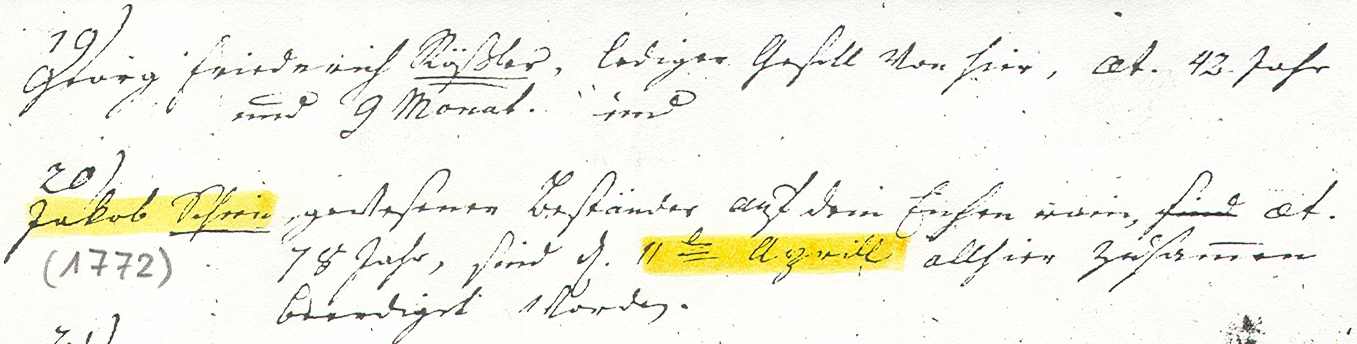 19)
Georg Friederich Rößler, lediger Gesell von hier, æt. 42. Jahr
und 9 Monat. und
20)
Jakob Schein, gewesener Beständer auf dem Eichen rain, sind æt.
(1772) 78 Jahr, sind d. 11te Aprill allhier zusam̅en
beerdiget worden.
21)